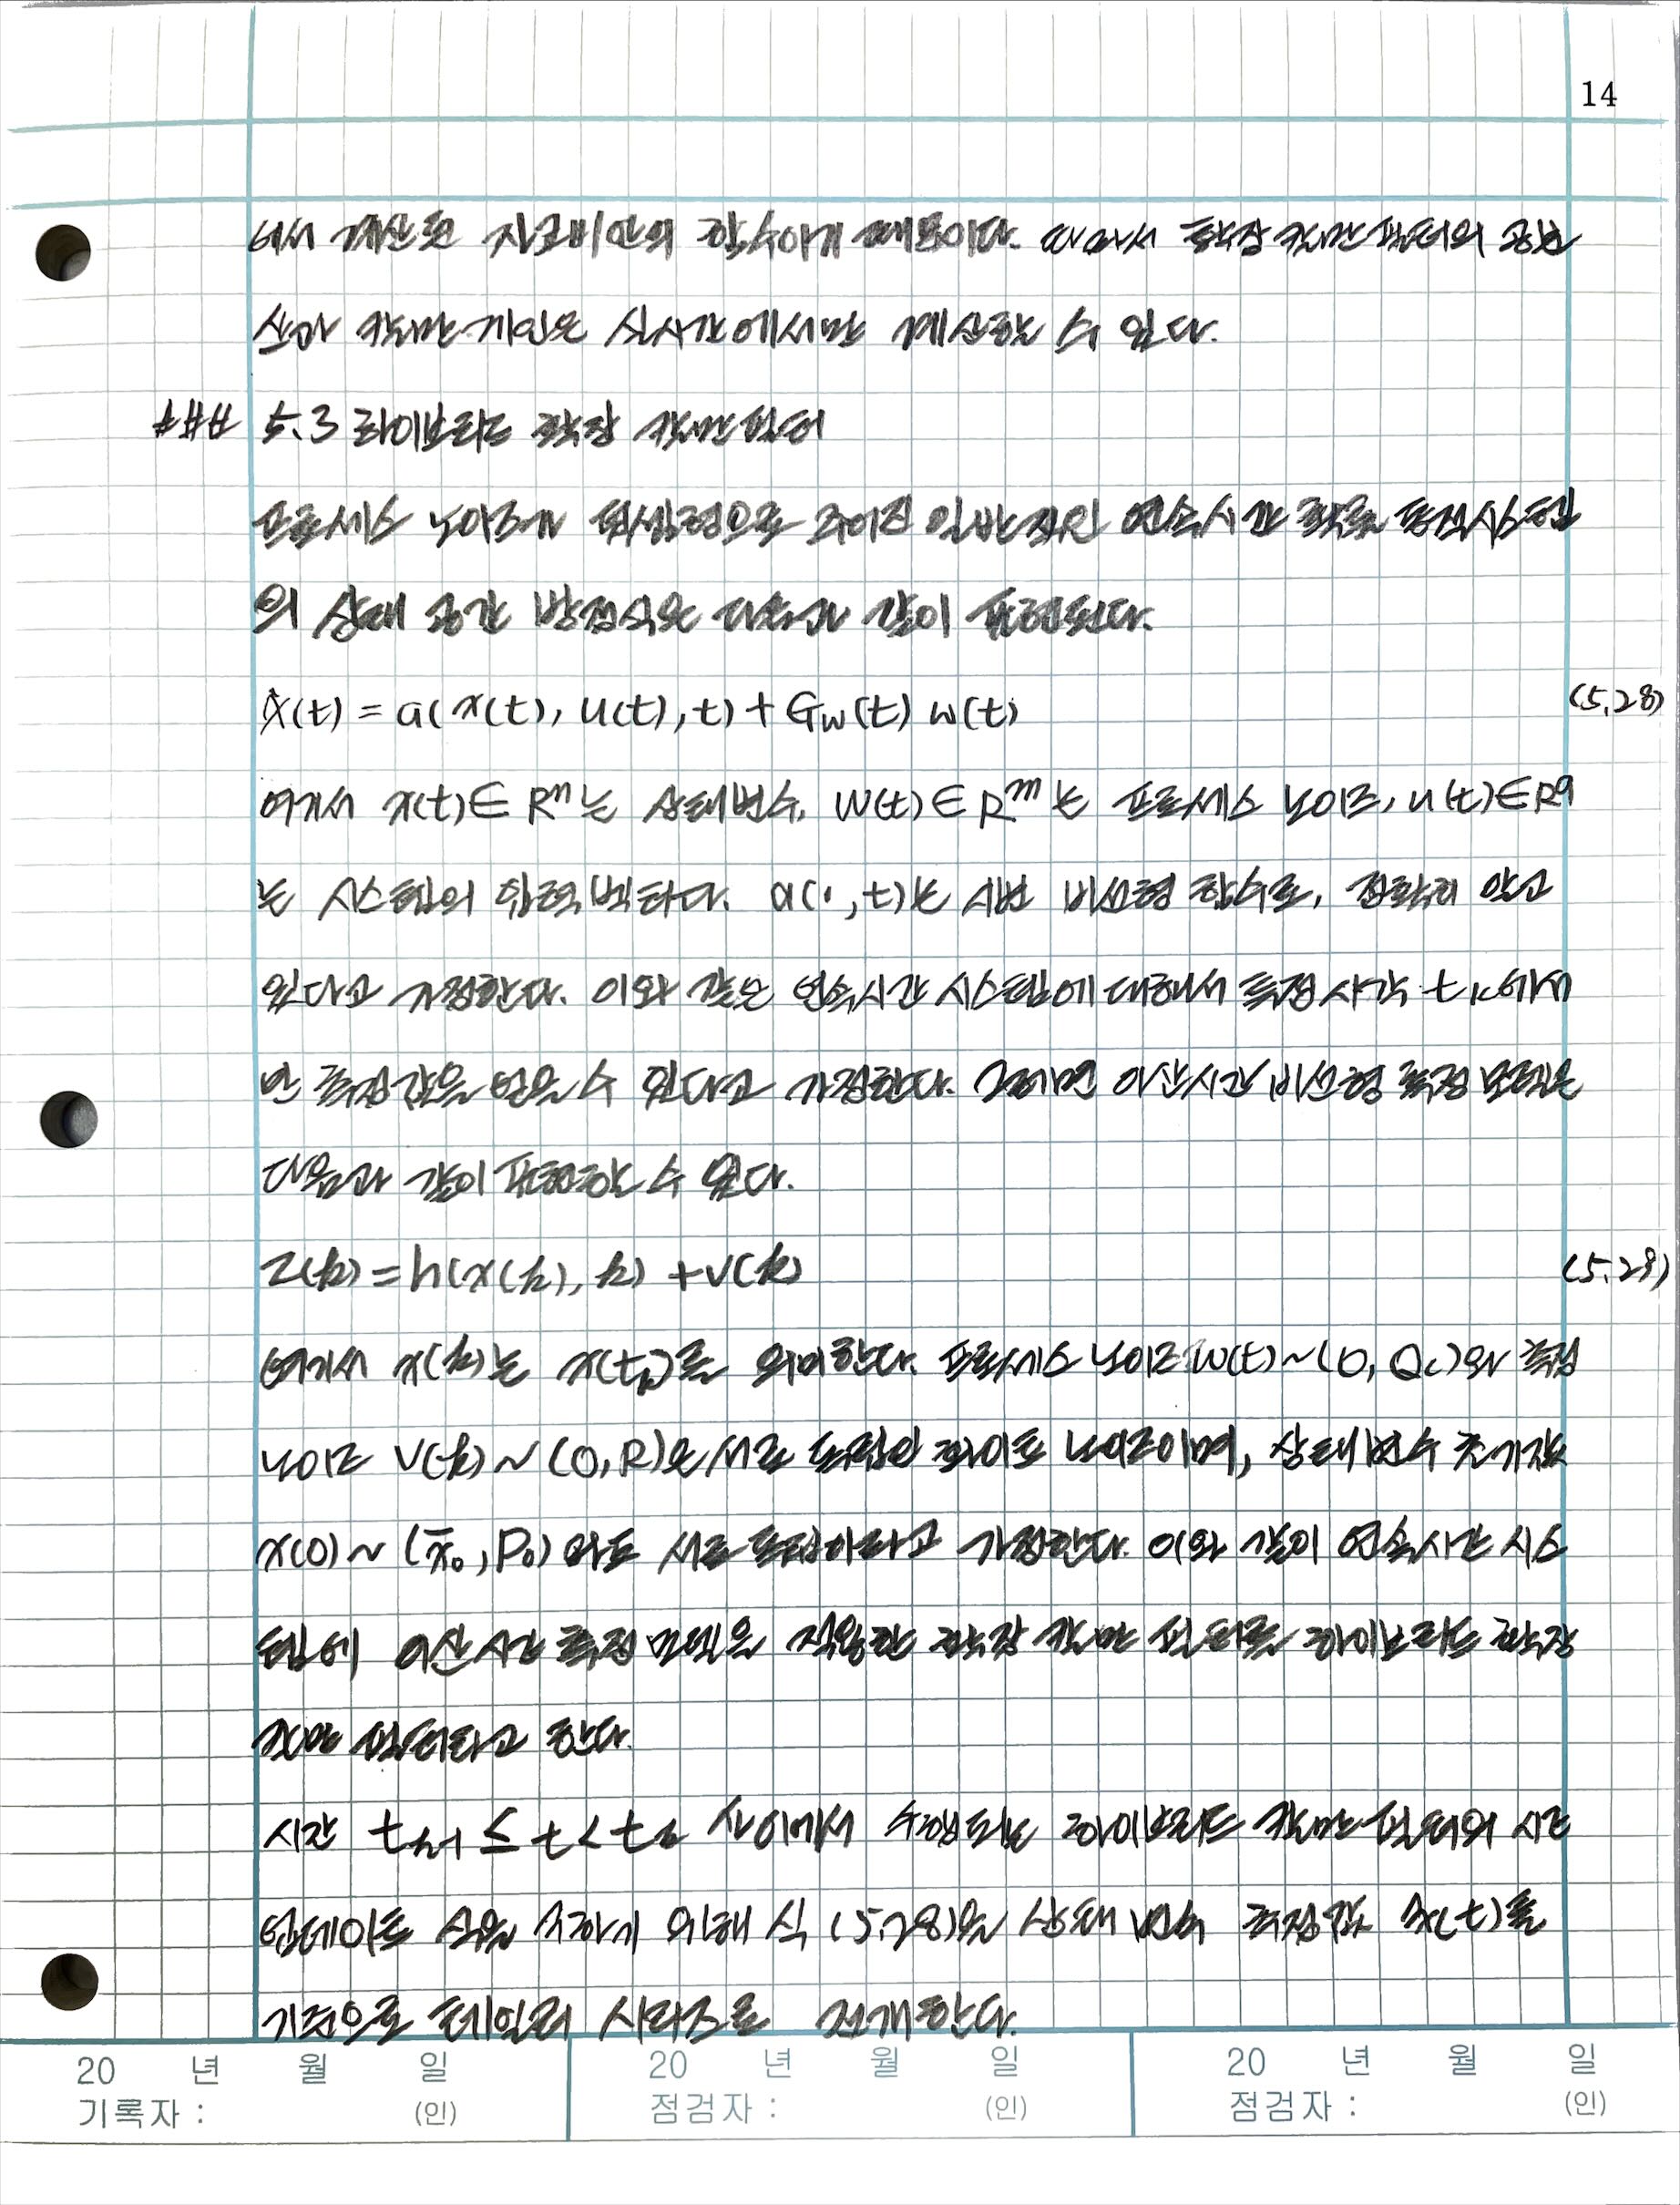 14
에서 계산된 자코비안의 함수이기 때문이다. 따라서 확장 칼만 필터의 공분
산과 칼만 게인은 실시간에서만 계산할 수 있다.
### 5.3 하이브리드 확장 칼만 필터
프로세스 노이즈가 덧셈형으로 주어진 일반적인 연속시간 확률 동적시스템
의 상태 공간 방정식은 다음과 같이 표현된다.
ẋ(t) = a(x(t), u(t), t) + G_w(t) w(t) (5.28)
여기서 x(t) ∈ R^n는 상태변수, w(t) ∈ R^m는 프로세스 노이즈, u(t) ∈ R^q
는 시스템의 입력 벡터다. a(·, t)는 시변 비선형 함수로, 정확히 알고
있다고 가정한다. 이와 같은 연속시간 시스템에 대해서 특정 시각 t_k에서
만 측정값을 얻을 수 있다고 가정한다. 그러면 이산시간 비선형 측정 모델은
다음과 같이 표현할 수 있다.
z(k) = h(x(k), k) + v(k) (5.29)
여기서 x(k)는 x(t_k)를 의미한다. 프로세스 노이즈 w(t) ~ (0, Q_c)와 측정
노이즈 v(k) ~ (0, R)은 서로 독립인 화이트 노이즈이며, 상태변수 초기값
x(0) ~ (x̄_0, P_0)와도 서로 독립이라고 가정한다. 이와 같이 연속시간 시스
템에 이산시간 측정 모델을 적용한 확장 칼만 필터를 하이브리드 확장
칼만 필터라고 한다.
시간 t_{k-1} ≤ t < t_k 사이에서 수행되는 하이브리드 칼만 필터의 시간
업데이트 식을 구하기 위해 식 (5.28)을 상태 변수 추정값 x̂(t)를
기준으로 테일러 시리즈로 전개한다.
20 년 월 일 20 년 월 일 20 년 월 일
기록자 : (인) 점검자 : (인) 점검자 : (인)